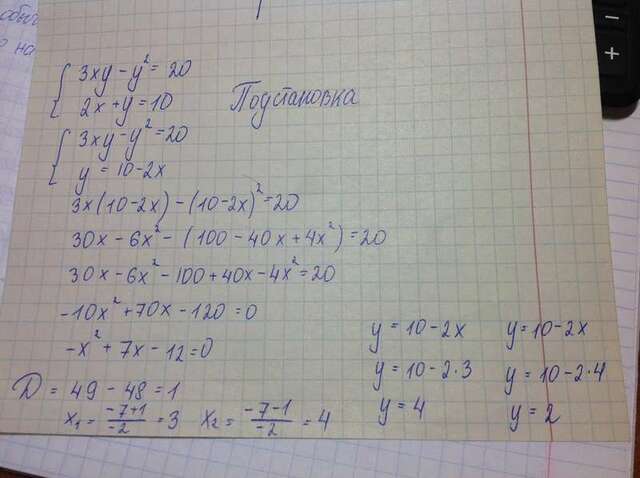 обыч
на
3xy - y² = 20
2x + y = 10
Подстановка
3xy - y² = 20
y = 10 - 2x
3x(10 - 2x) - (10 - 2x)² = 20
30x - 6x² - (100 - 40x + 4x²) = 20
30x - 6x² - 100 + 40x - 4x² = 20
-10x² + 70x - 120 = 0
-x² + 7x - 12 = 0
D = 49 - 48 = 1
x₁ = (-7+1)/(-2) = 3    x₂ = (-7-1)/(-2) = 4
y = 10 - 2x    y = 10 - 2x
y = 10 - 2·3    y = 10 - 2·4
y = 4    y = 2
−
+